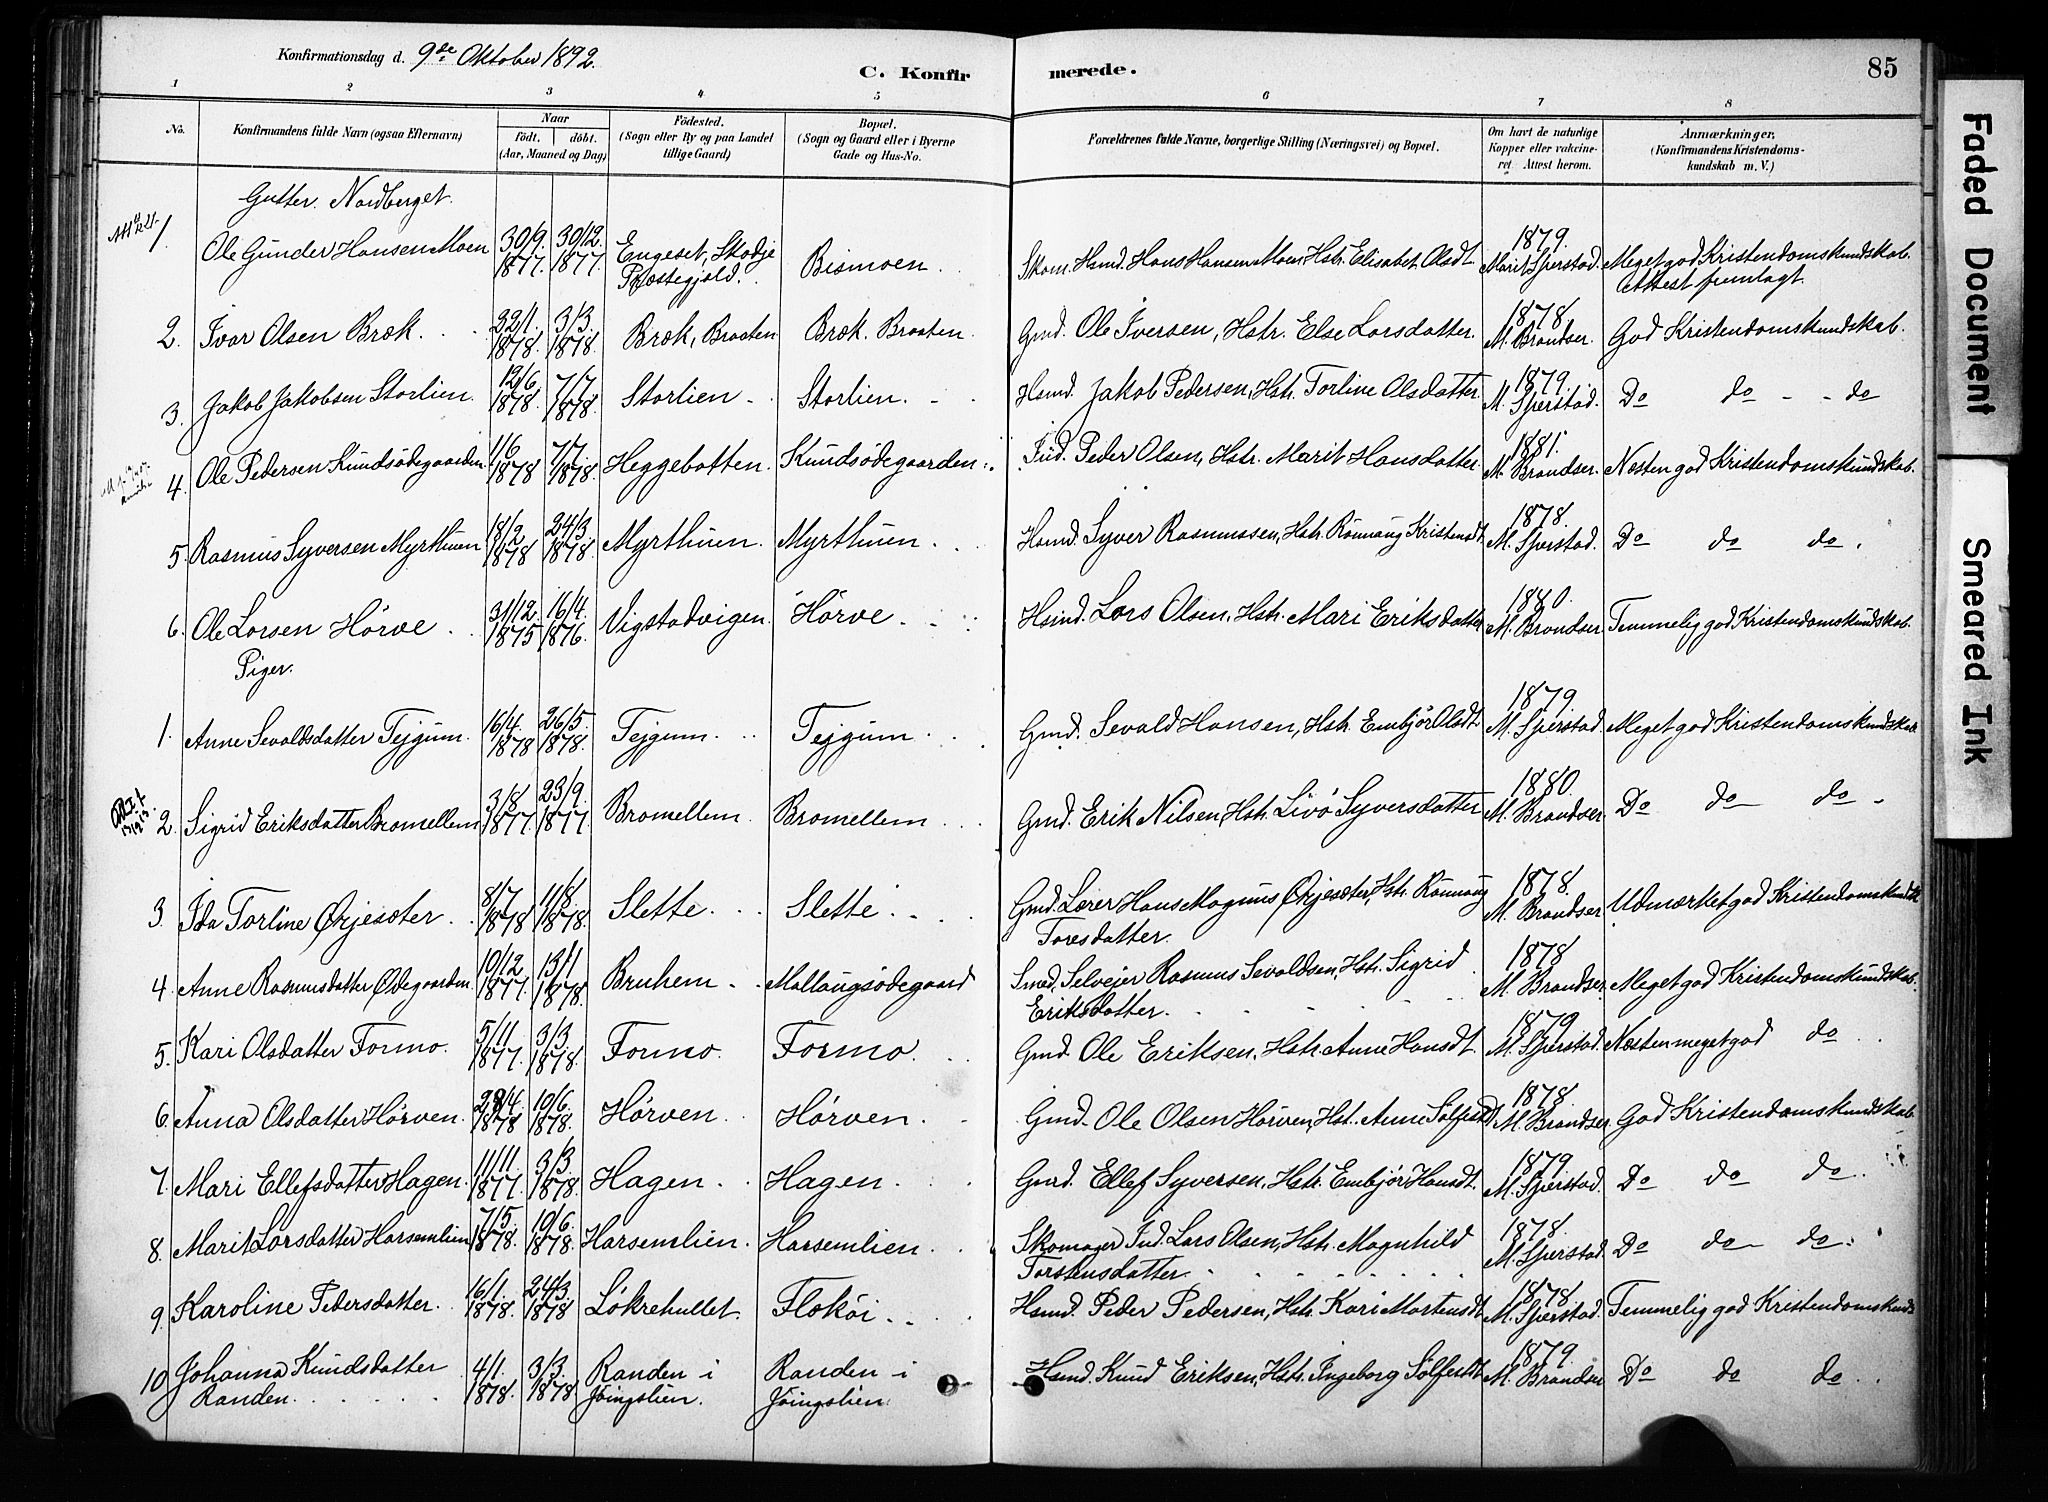 Konfirmationsdag d. 9de Oktober 1892.
C. Konfir merede. 85
1 2 3 4 5 6 7 8
No. Konfirmandens fulde Navn (ogsaa Efternavn) Naar født. døbt. (Aar, Maaned og Dag) Fødested. (Sogn eller By og paa Landet tillige Gaard) Bopæl. (Sogn og Gaard eller i Byerne Gade og Hus-No. Forældrenes fulde Navne, borgerlige Stilling (Næringsvei) og Bopæl. Om havt de naturlige Kopper eller vaccineret. Attest herom. Anmærkninger. (Konfirmandens Kristendomskundskab m. V.)
Gutter. Nordberget.
1. Ole Gunder Hansen Moen 30/9. 1877. 30/12. 1877. Engeset, Skodje Præstegjeld. Bismoen Skom. Hsmd. Hans Hansen Moen, Hstr. Elisabet Olsdt. 1879. Marit Sperstad. Meget god Kristendomskundskab. Attest fremlagt.
2. Ivar Olsen Bræk. 22/1. 1878. 3/3. 1878. Bræk, Braaten Bræk. Braaten. Gmd. Ole Iversen, Hstr. Else Larsdatter. 1878. M. Brandser. God Kristendomskundskab.
3. Jakob Jakobsen Storlien. 12/6. 1878. 7/7. 1878. Storlien Storlien. Hsmd. Jakob Pedersen, Hstr. Torline Olsdatter. 1879. M. Sperstad. Do do do
4. Ole Pedersen Knudsødegaarden. 1/6 1878 7/7. 1878. Heggebotten. Knudsødegaarden. Ind. Peder Olsen, Hstr. Marit Hansdatter. 1881. M. Brandser. Næsten god Kristendomskundskab.
5. Rasmus Syversen Myrthuen 18/2 1878 24/3 1878. Myrthuen. Myrthuen Hsmd. Syver Rasmussen, Hstr. Rønnaug Kristensdt. 1878. M. Sperstad. Do do do.
6. Ole Larsen Hörve 31/12 1875 16/4. 1876. Vigstadvigen. Hörve Hsmd. Lars Olsen, Hstr. Mari Eriksdatter 1880. M. Brandser. Temmelig god Kristendomskundskab.
Piger.
1. Anne Sevaldsdatter Tejgum. 16/4. 1878 26/5. 1878. Tejgum. Tejgum Gmd. Sevald Hansen, Hstr. Embjør Olsdt. 1879. M. Sperstad. Meget god Kristendomskundskab
2. Sigrid Eriksdatter Bromellem 3/8 1877. 23/9. 1877. Bromellem. Bromellem Gmd. Erik Nilsen, Hstr. Livø Syversdatter 1880. M. Brandser. Do do do
3. Ida Torline Øyjesæter. 8/7 1878 11/8. 1878. Slette. Slette Gmd. Lærer Hans Magnus Øyjesæter, Hstr. Rønnaug Toresdatter. 1878. M. Brandser. Udmærket god Kristendomskundsk.
4. Anne Rasmusdatter Ødegaarden. 10/12 1877. 13/1 1878. Bruhem Mallaugsødegaard Smed, Selvejer Rasmus Sevaldsen, Hstr. Sigrid Eriksdatter. 1878 M. Brandser. Meget god Kristendomskundskab.
5. Kari Olsdatter Formo. 5/11 1877. 3/3. 1878. Formo. Formo. Gmd. Ole Eriksen, Hstr. Anne Hansdt. 1879 M. Sperstad. Næsten meget god do
6. Anna Olsdatter Hörven. 28/4. 1878 10/6. 1878. Hörven Hörven. Gmd. Ole Olsen Hörven, Hstr. Anne Solfestdt. 1878. M. Brandser. God Kristendomskundskab
7. Mari Ellefsdatter Hagen. 11/11. 1877. 3/3. 1878. Hagen Hagen Gmd. Ellef Syversen, Hstr. Embjør Hansdt. 1879. M. Sperstad. Do do do.
8. Marit Larsdatter Harsemlien 7/5. 1878. 10/6. 1878. Harsemlien. Harsemlien. Skomager Ind. Lars Olsen, Hstr. Magnhild Torstensdatter. 1878. M. Sperstad. Do do do.
9. Karoline Pedersdatter. 16/1. 1878. 24/3. 1878 Lökrehullet. Flekøi Hsmd. Peder Pedersen, Hstr. Kari Mortensdt. 1878 M. Sperstad. Temmelig god Kristendomskunds
10. Johanna Knudsdatter Randen. 4/1. 1878. 3/3. 1878 Randen i Jöingslien. Randen i Jöingslien. Hsmd. Knud Eriksen, Hstr. Ingeborg Solfestdt. 1879. M. Brandser Do do do
Faded Document
Smeared Ink